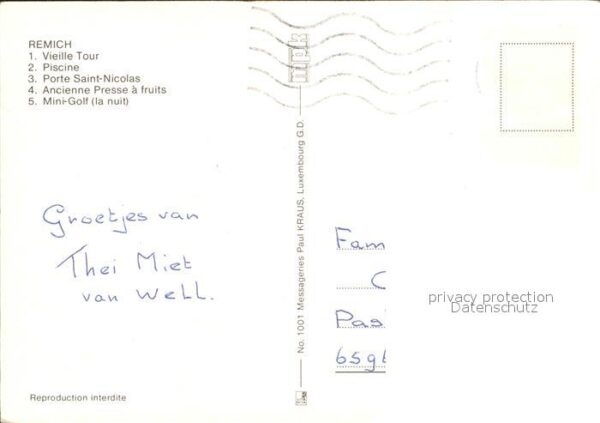 REMICH
1. Vieille Tour
2. Piscine
3. Porte Saint-Nicolas
4. Ancienne Presse à fruits
5. Mini-Golf (la nuit)
mpk
No. 1001 Messageries Paul KRAUS, Luxembourg G.D.
Groetjes van
Thei Miet
van Well.
Fam
C
Pas
6591
privacy protection
Datenschutz
Reproduction interdite